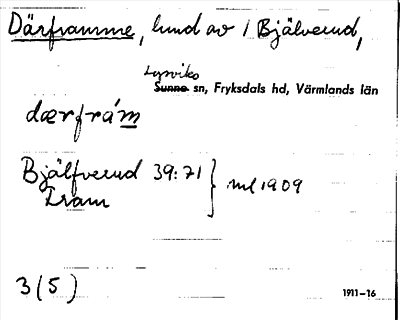 Därframme, lund av / Bjälverud,
Lysviks
Sunne sn, Fryksdals hd, Värmlands län
dærfrám
Bjälfverud 39:71 } ml 1909
Fram
3 (5)
1911–16